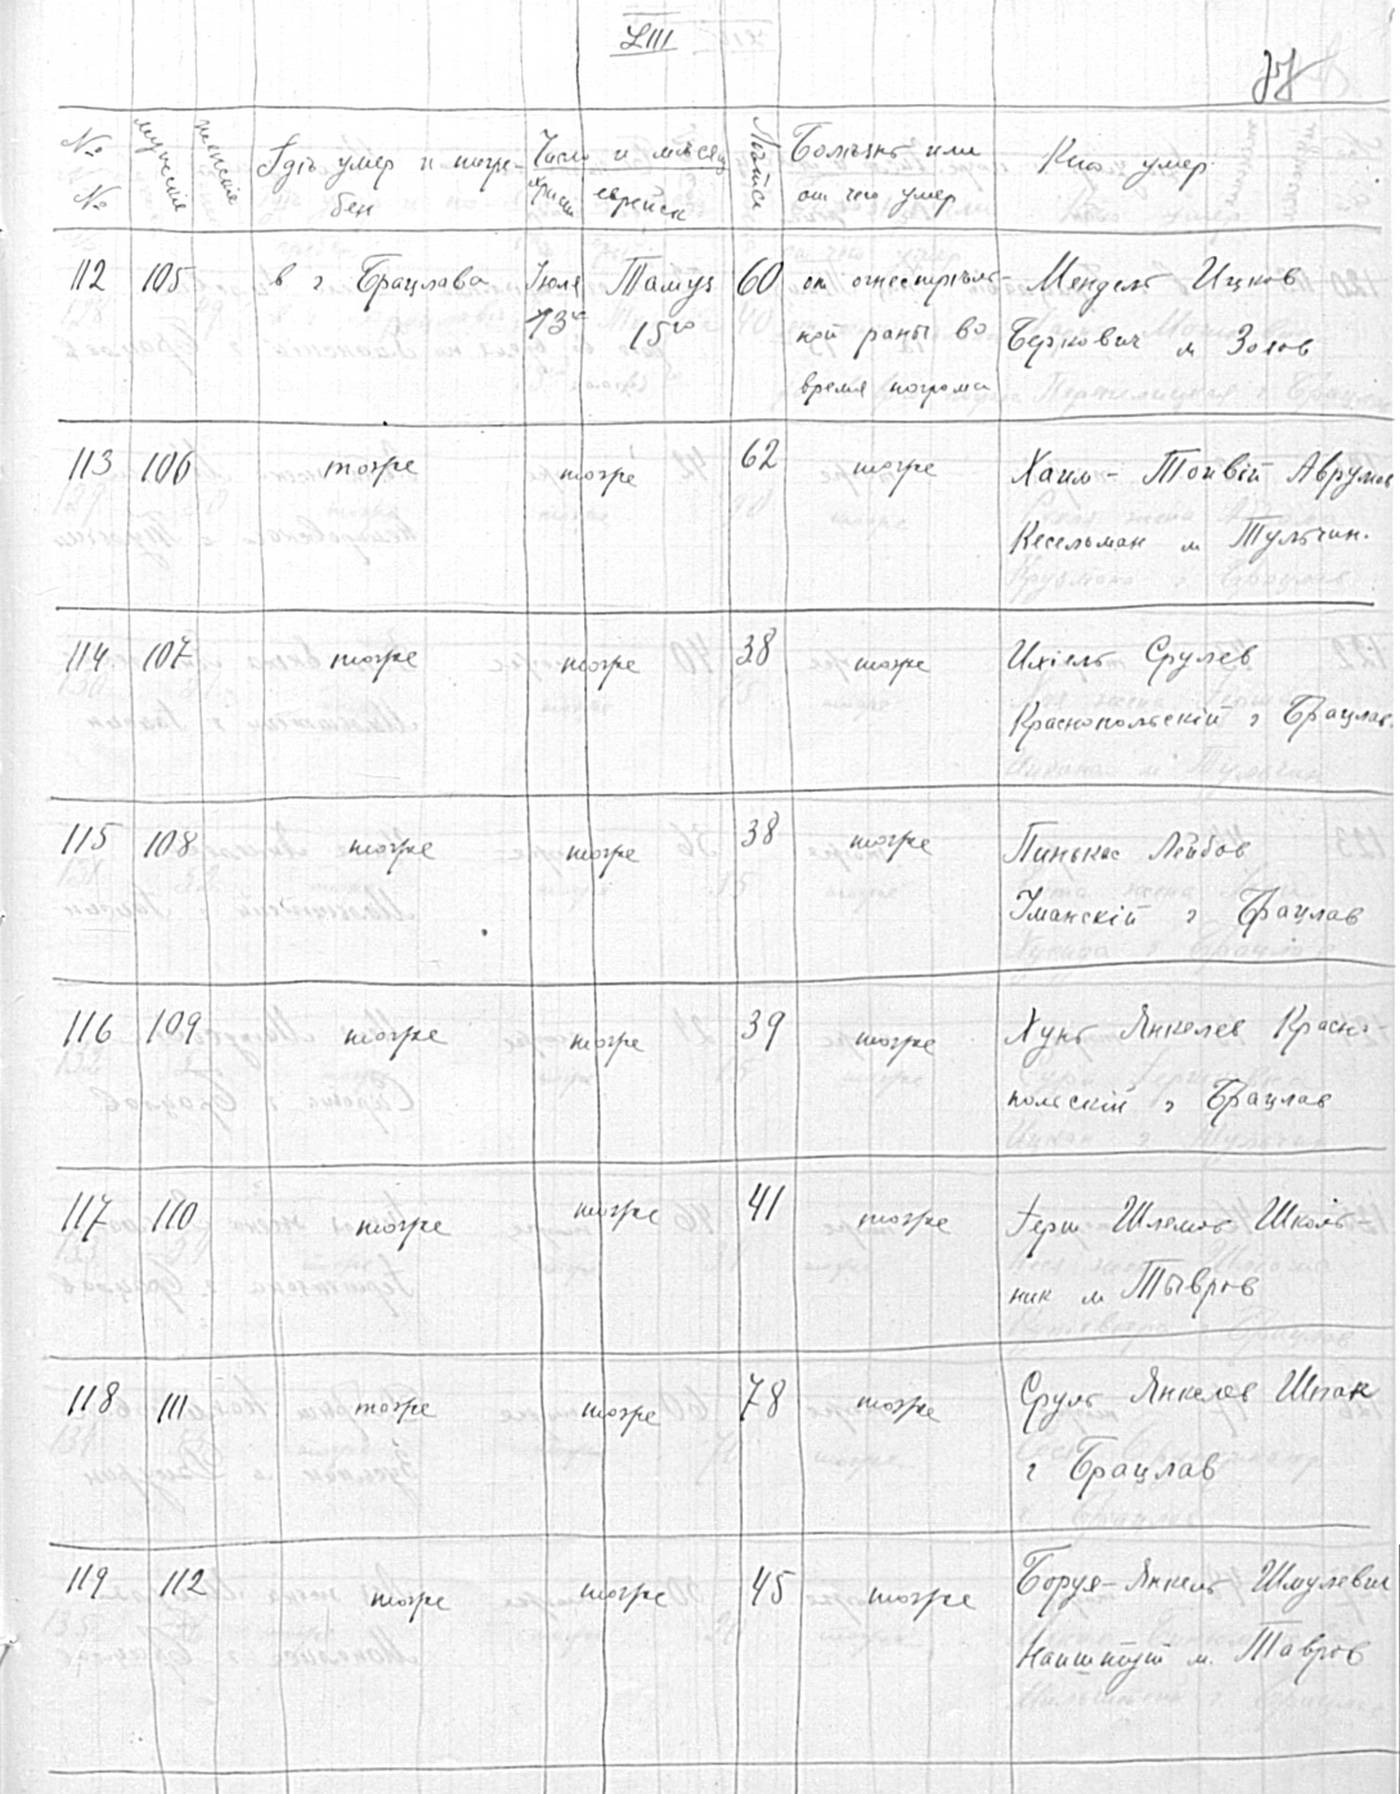 LIII
77
№ №
мужскіе
женскіе
Гдѣ умер и погре-
бен
Число и мѣсяц
христ
еврейск
Лѣта
Болѣзнь или
от чего умер
Кто умер
112 105 в г Брацлава Іюля Тамуз 60 от огнестрѣль- Мендель Ицков
13го 15го ной раны во Беркович м
время погрома
113 106 тоже тоже 62 тоже Хаим-Тойвій Аврумов
Кесельман м Тульчин.
114 107 тоже тоже 38 тоже Ихіель Срулев
Краснопольскій г Брацлав.
115 108 тоже тоже 38 тоже Пинькас Лейбов
Уманскій г Брацлав
116 109 тоже тоже 39 тоже Хунь Янкелев Красно-
полескій г Брацлав
117 110 тоже тоже 41 тоже Герш Шлемов Школь-
ник м Тывров
118 111 тоже тоже 78 тоже Сруль Янкелев Шпак
г Брацлав
119 112 тоже тоже 45 тоже Борух-Янкель Шмулевич
м. Тавров